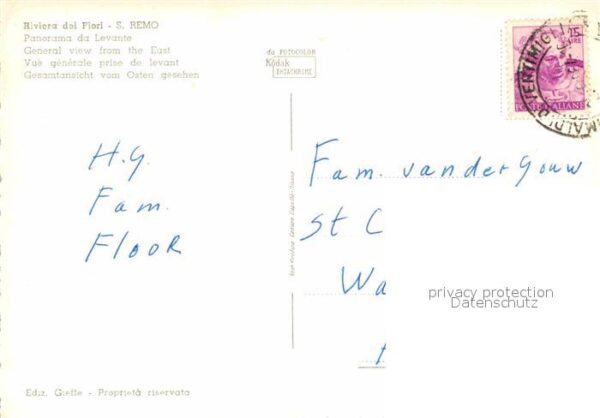 Riviera dei Fiori - S. REMO
Panorama da Levante
General view from the East
Vue générale prise de levant
Gesamtansicht vom Osten gesehen
da FOTOCOLOR
Kodak
EKTACHROME
15
LIRE
POSTE ITALIANE
H.G.
Fam.
Floor
Fam. van der Gouw
St C
Wa
privacy protection
Datenschutz
Ediz. Gieffe - Proprietà riservata